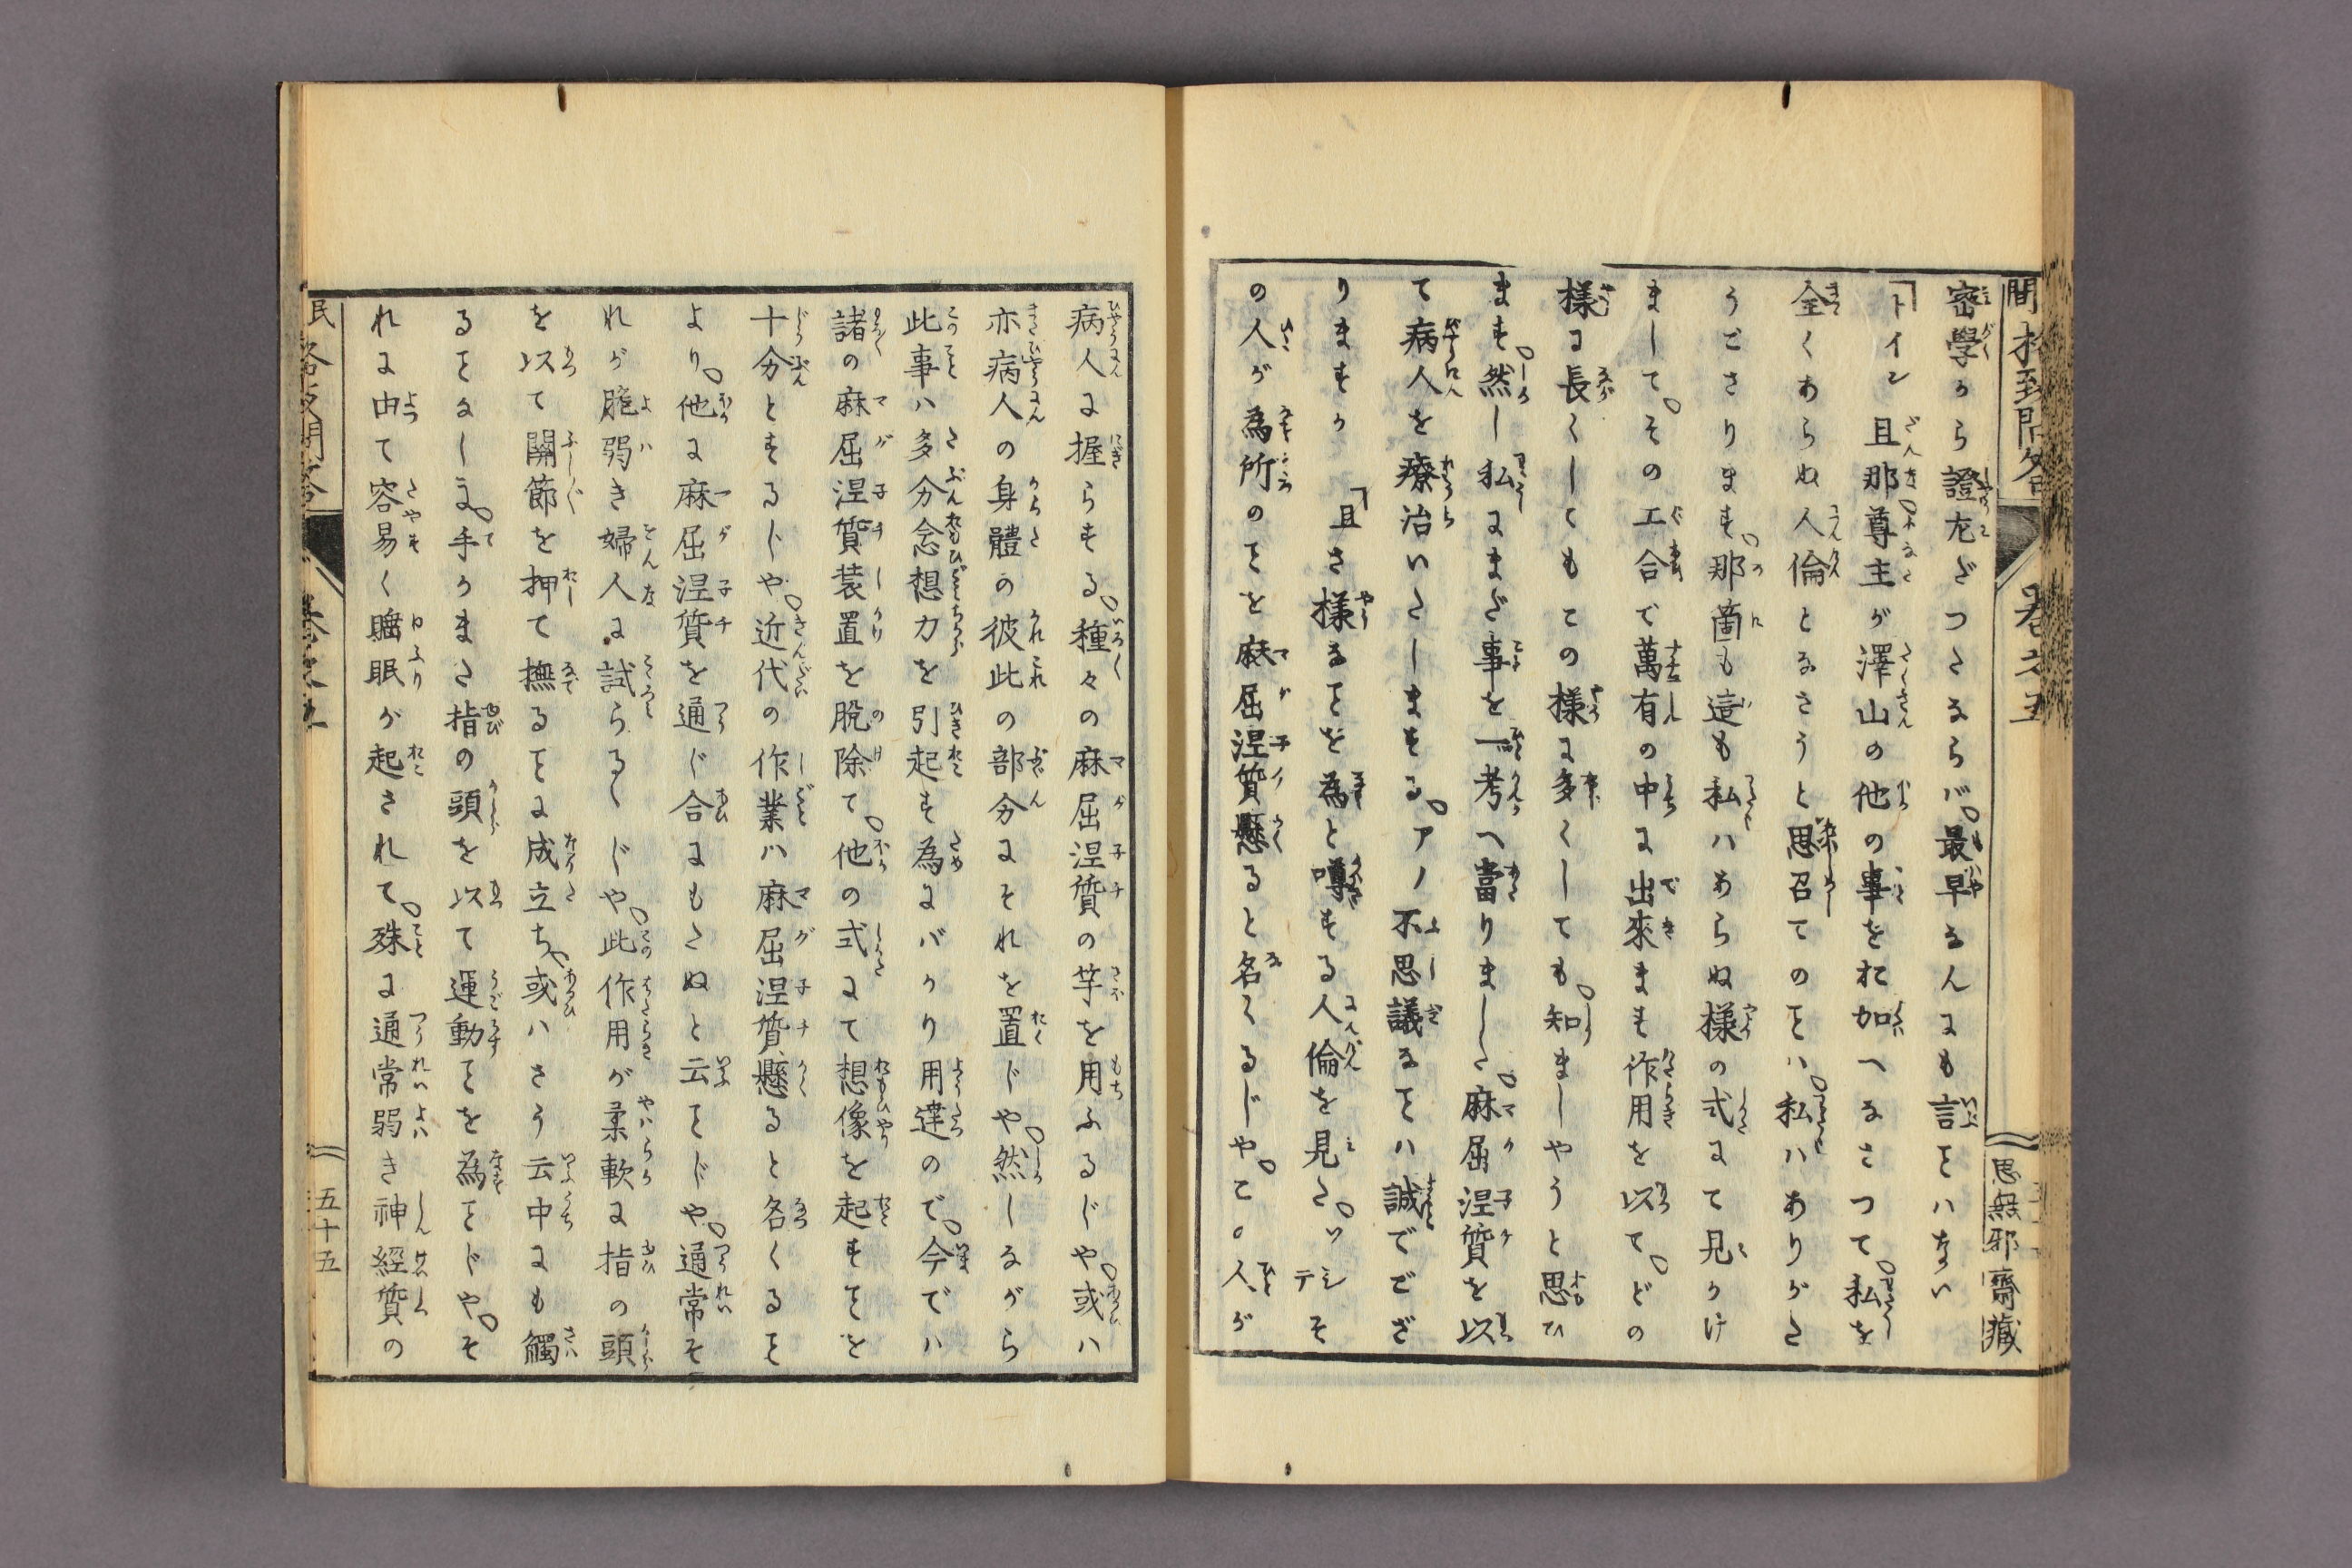 密學から證㔫だつたならバ。最早なんにも言ヿハない
「トイン 且那尊主が澤山の他の事をお加へなさつて。私を
全くあらぬ人倫となさうと思召てのヿハ。私ハありがた
うごさります。那箇も這も私ハあらぬ様の式にて見かけ
まして。その工合で萬有の中に出來ます作用を以て。どの
様に長くしてもこの様に多くしても。知ましやうと思ひ
ます。然し私にまだ事を一考へ當りました。麻屈涅質を以
て病人を療治いたしまする。アノ不思議なヿハ誠でござ
りますか 「且さ様なヿを為と噂する人倫を見た。ッテシそ
の人が為所のヿを麻屈涅質懸ると名くるじや。この人が
思無邪齋藏
病人に握らする。種々の麻屈涅質の竿を用ふるじや。或ハ
亦病人の身體の彼此の部分にそれを置じや。然しながら
此事ハ多分念想力を引起す為にバかり用達ので。今でハ
諸の麻屈涅質装置を脱除て。他の式にて想像を起すヿを
十分とするじや。近代の作業ハ麻屈涅質懸ると名くるヿ
より。他に麻屈涅質を通じ合にもたぬと云ヿじや。通常そ
れが脆弱き婦人に試らるゝじや。此作用が柔軟に指の頭
を以て關節を押て撫るヿに成立ち。或ハさう云中にも觸
るヿなしに。手かまた指の頭を以て運動ヿを為ヿじや。そ
れに由て容易く睡眠が起されて。殊に通常弱き神經質の
五十五